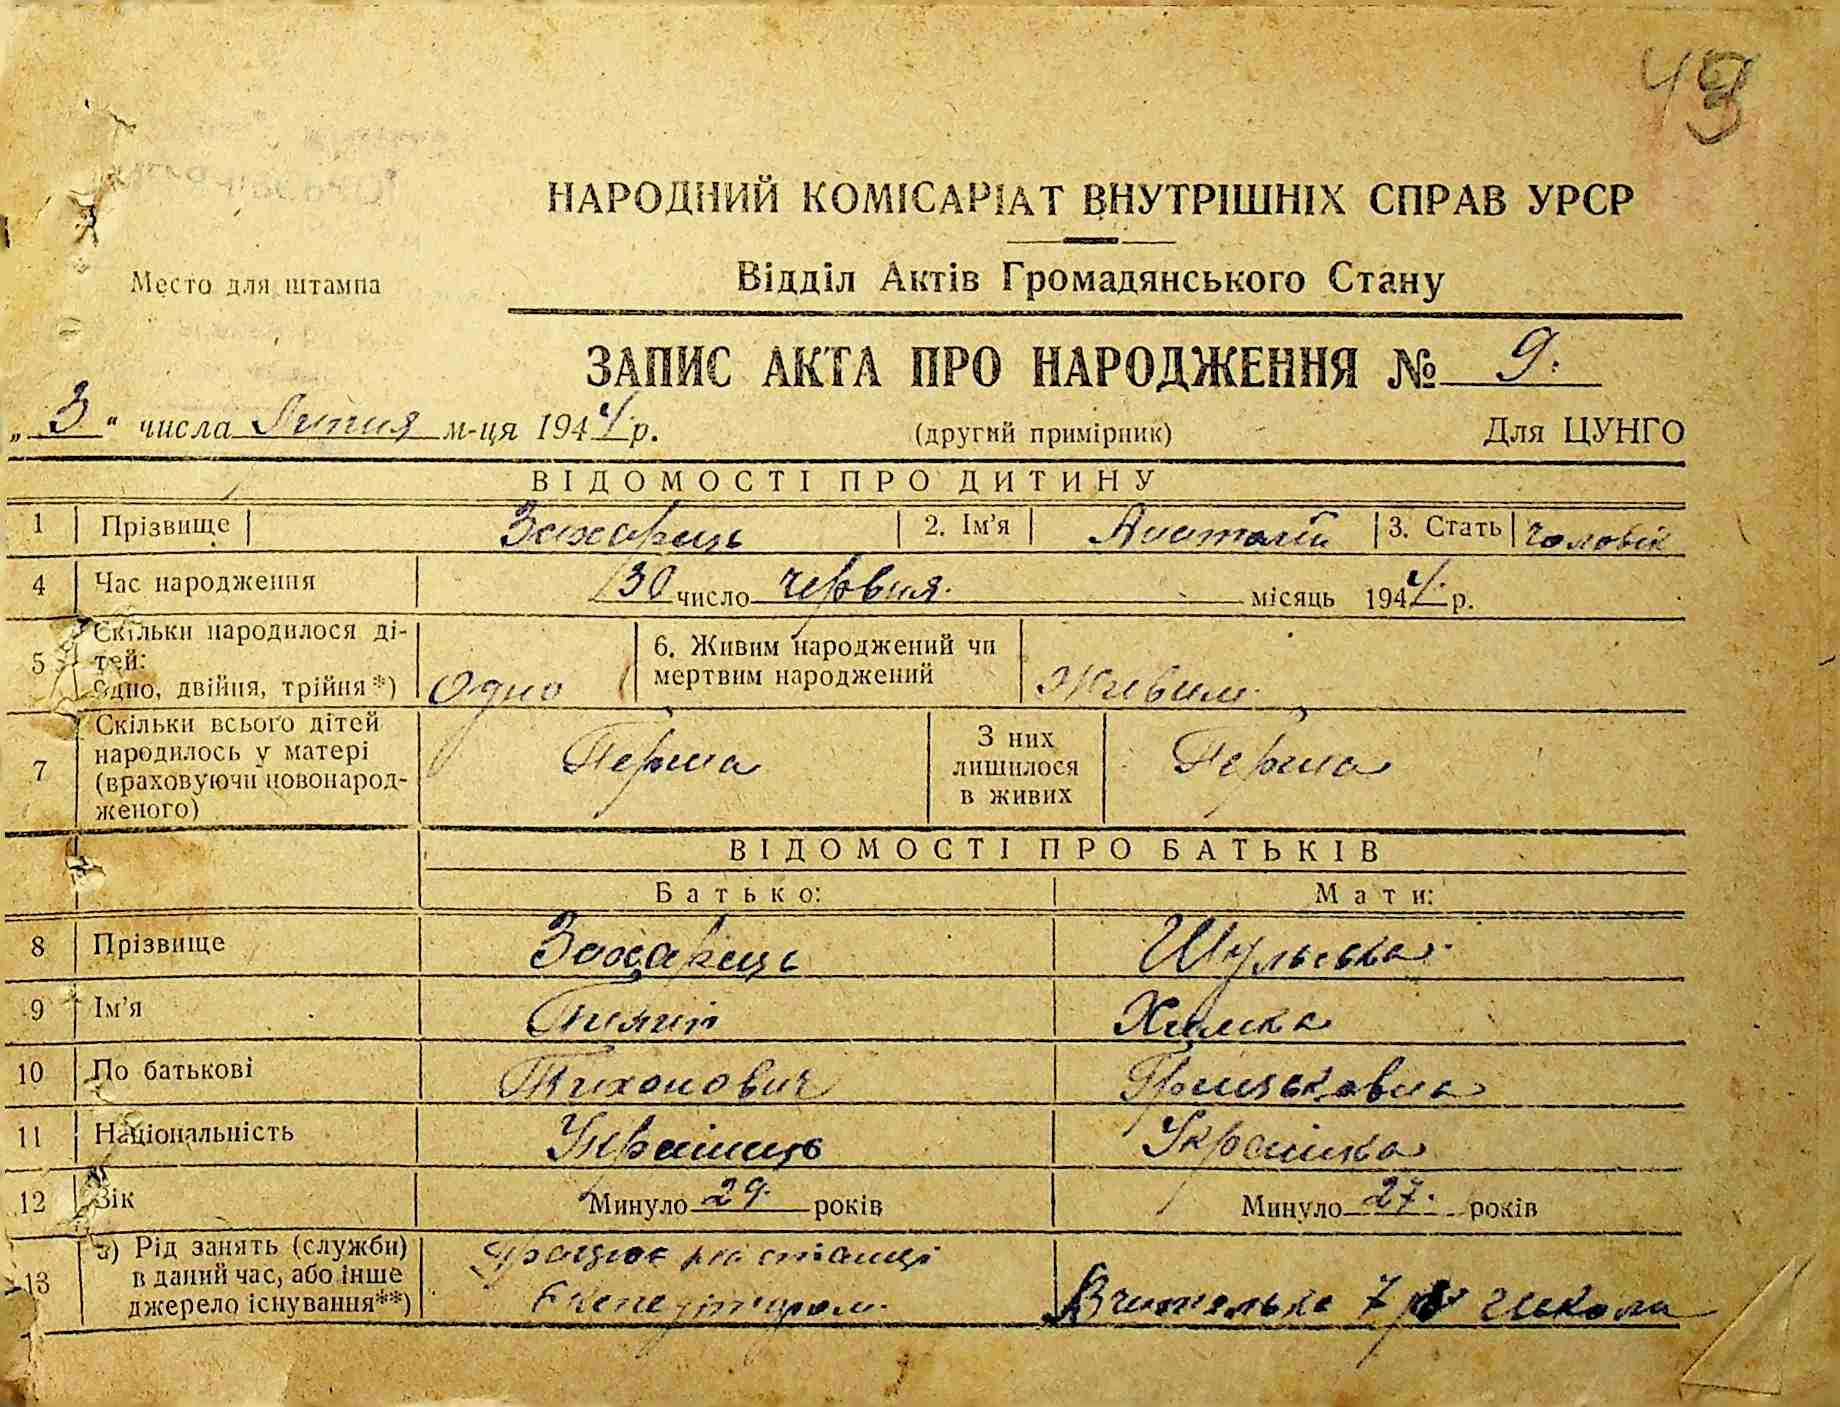 49
НАРОДНИЙ КОМІСАРІАТ ВНУТРІШНІХ СПРАВ УРСР
Место для штампа
Відділ Актів Громадянського Стану
ЗАПИС АКТА ПРО НАРОДЖЕННЯ № 9.
„3“ числа Липня м-ця 1944 р. (другий примірник) Для ЦУНГО
ВІДОМОСТІ ПРО ДИТИНУ
1 Прізвище Захарець 2. Ім’я Анатолій 3. Стать Чоловік
4 Час народження 30 число червня. місяць 1944. р.
5 Скільки народилося дітей: одно, двійня, трійня*) Одно 6. Живим народжений чи мертвим народжений Живим.
7 Скільки всього дітей народилось у матері (враховуючи новонародженого) Перша З них лишилося в живих Перша
ВІДОМОСТІ ПРО БАТЬКІВ
Батько: Мати:
8 Прізвище Захарець Шульська.
9 Ім’я Пилип Химка
10 По батькові Тихонович Грицьковна
11 Національність Українець Українка
12 Вік Минуло 29. років Минуло 27. років
13 а) Рід занять (служби) в даний час, або інше джерело існування**) Працює на станції Вчителька 7 школи